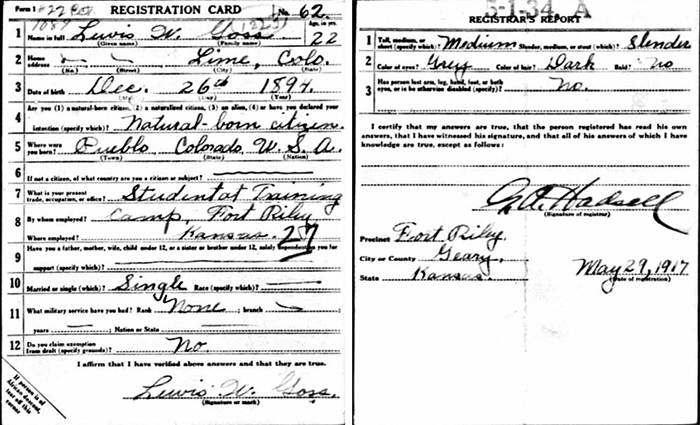 Form 1 REGISTRATION CARD No. 62
Age, in yrs.
1 Name in full Lewis W. Goss 22
(Given name) (Family name)
2 Home address Lime, Colo.
(No.) (Street) (City) (State)
3 Date of birth Dec. 26th 1894.
4 Are you (1) a natural-born citizen, (2) a naturalized citizen, (3) an alien, (4) or have you declared your
intention (specify which)? Natural-born citizen.
5 Where were you born? Pueblo Colorado U.S.A.
(Town) (State) (Nation)
6 If not a citizen, of what country are you a citizen or subject?
7 What is your present trade, occupation, or office? Student at Training
8 By whom employed? Camp, Fort Riley
Where employed? Kansas. 27
9 Have you a father, mother, wife, child under 12, or a sister or brother under 12, solely dependent on you for
support (specify which)?
10 Married or single (which)? Single Race (specify which)?
11 What military service have you had? Rank None; branch
years; Nation or State
12 Do you claim exemption from draft (specify grounds)? No.
I affirm that I have verified above answers and that they are true.
Lewis W. Goss.
(Signature or mark)
If person is of
African descent,
tear off this
corner
5-1-34 A
REGISTRAR'S REPORT
1 Tall, medium, or short (specify which)? Medium Slender, medium, or stout (which)? Slender
2 Color of eyes? Grey Color of hair? Dark Bald? No
3 Has person lost arm, leg, hand, foot, or both
eyes, or is he otherwise disabled (specify)? No.
I certify that my answers are true, that the person registered has read his own
answers, that I have witnessed his signature, and that all of his answers of which I have
knowledge are true, except as follows:
G. A. Hadsell
(Signature of registrar)
Precinct Fort Riley.
City or County Geary.
State Kansas.
May 29, 1917.
(Date of registration)